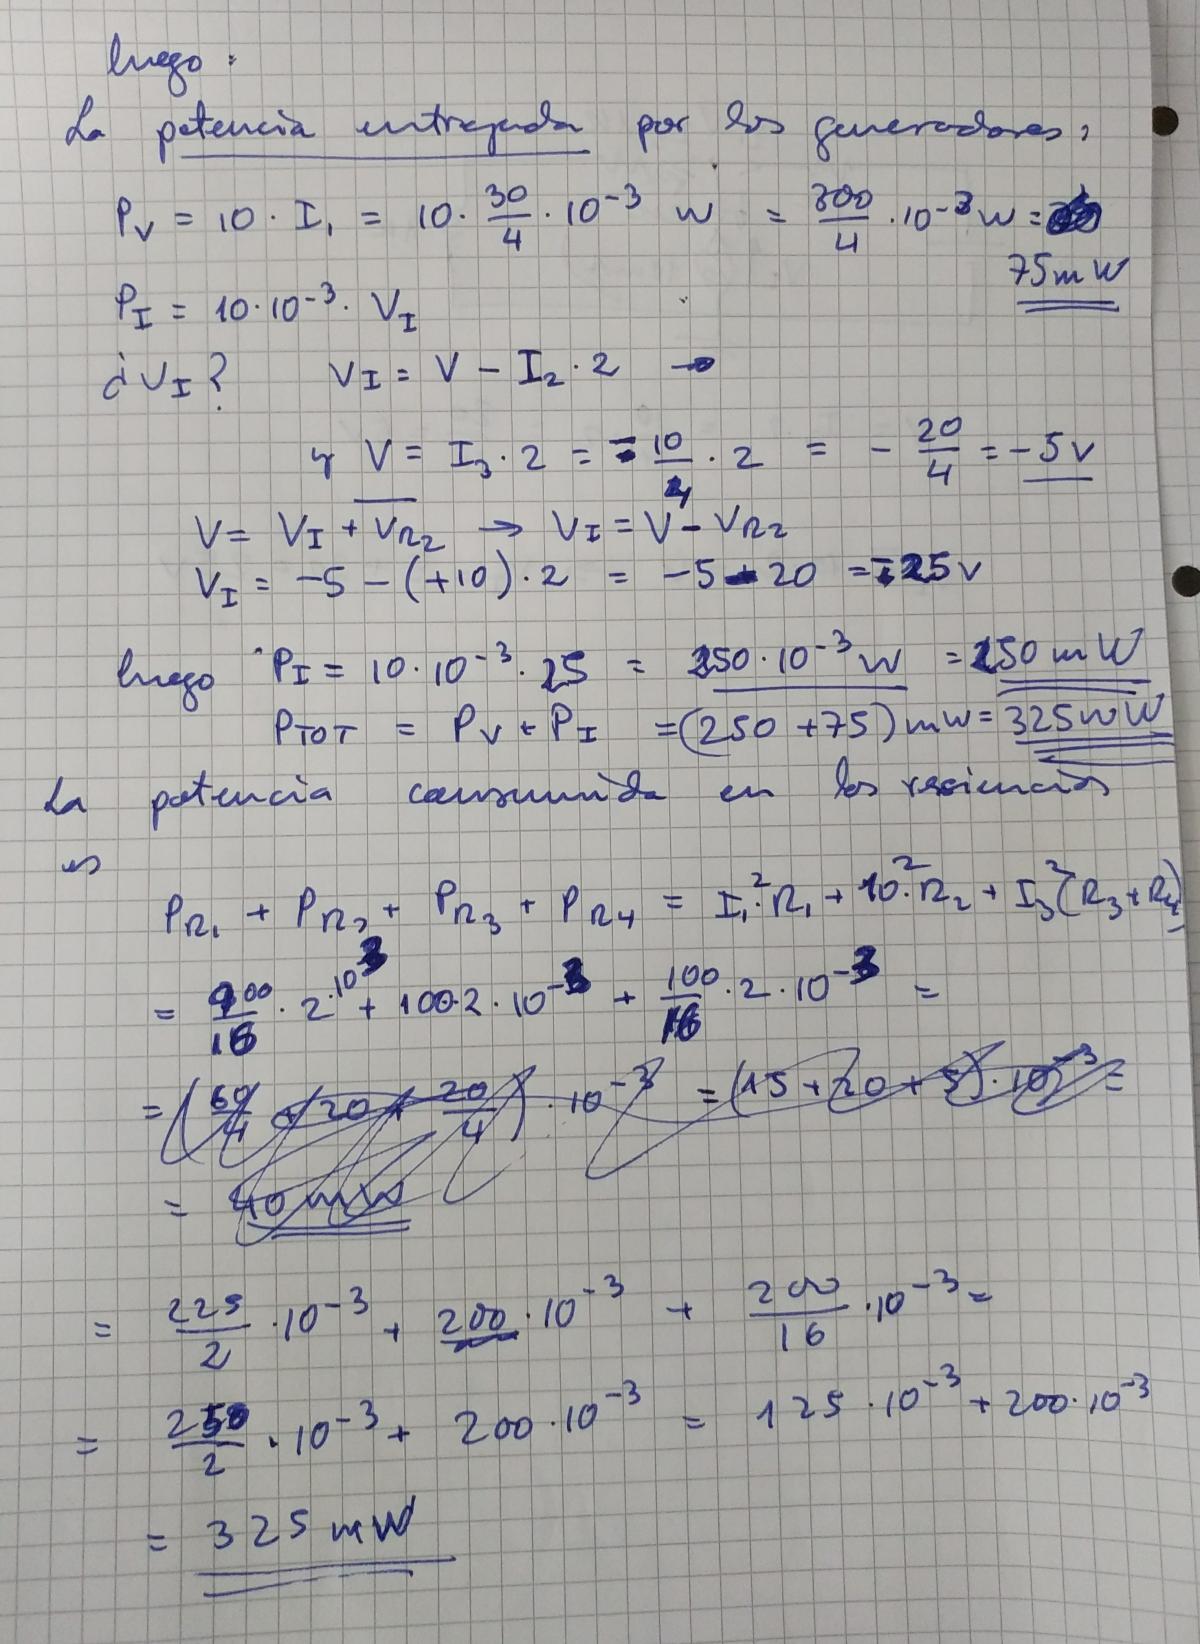 luego:
La potencia entregada por los generadores,
P_V = 10 · I_1 = 10 · 30/4 · 10^-3 W = 300/4 · 10^-3 W =
75 mW
P_I = 10 · 10^-3 · V_I
¿V_I? V_I = V - I_2 · 2 →
y V = I_3 · 2 = - 10/4 · 2 = - 20/4 = -5 V
V = V_I + V_R2 → V_I = V - V_R2
V_I = -5 - (+10) · 2 = -5 - 20 = -25 V
luego P_I = 10 · 10^-3 · 25 = 250 · 10^-3 W = 250 mW
P_TOT = P_V + P_I = (250 + 75) mW = 325 mW
La potencia consumida en las resiencias
es
P_R1 + P_R2 + P_R3 + P_R4 = I_1^2 · R_1 + 10^2 · R_2 + I_3^2 (R_3 + R_4)
= 900/16 · 2 · 10^3 + 100 · 2 · 10^-3 + 100/16 · 2 · 10^-3 =
= (60/4 + 20 + 20/4) · 10^-3 = (15 + 20 + 5) · 10^-3 =
= 40 mW
= 225/2 · 10^-3 + 200 · 10^-3 + 200/16 · 10^-3 =
= 250/2 · 10^-3 + 200 · 10^-3 = 125 · 10^-3 + 200 · 10^-3
= 325 mW